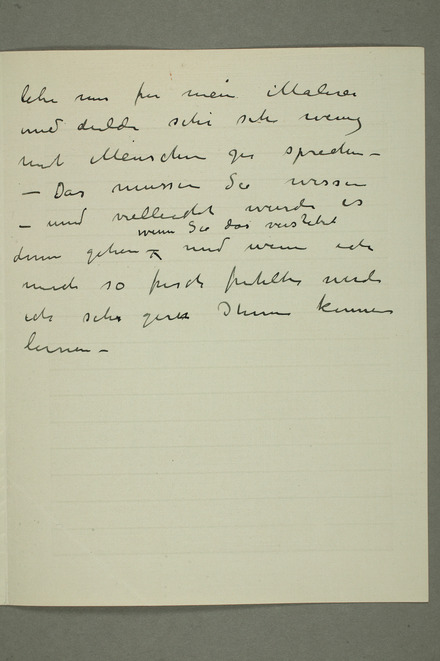 lebe nur für mein Malerei
und dulde sehr sehr wenig
mit Menschen zu sprechen –
– Das mussen Sie wissen
– und vielleicht wurde es
wenn Sie das versteht
dann gehen – und wenn ich
mich so frisch fuhlte wurde
ich sehr gern Ihnen kennen
lernen –